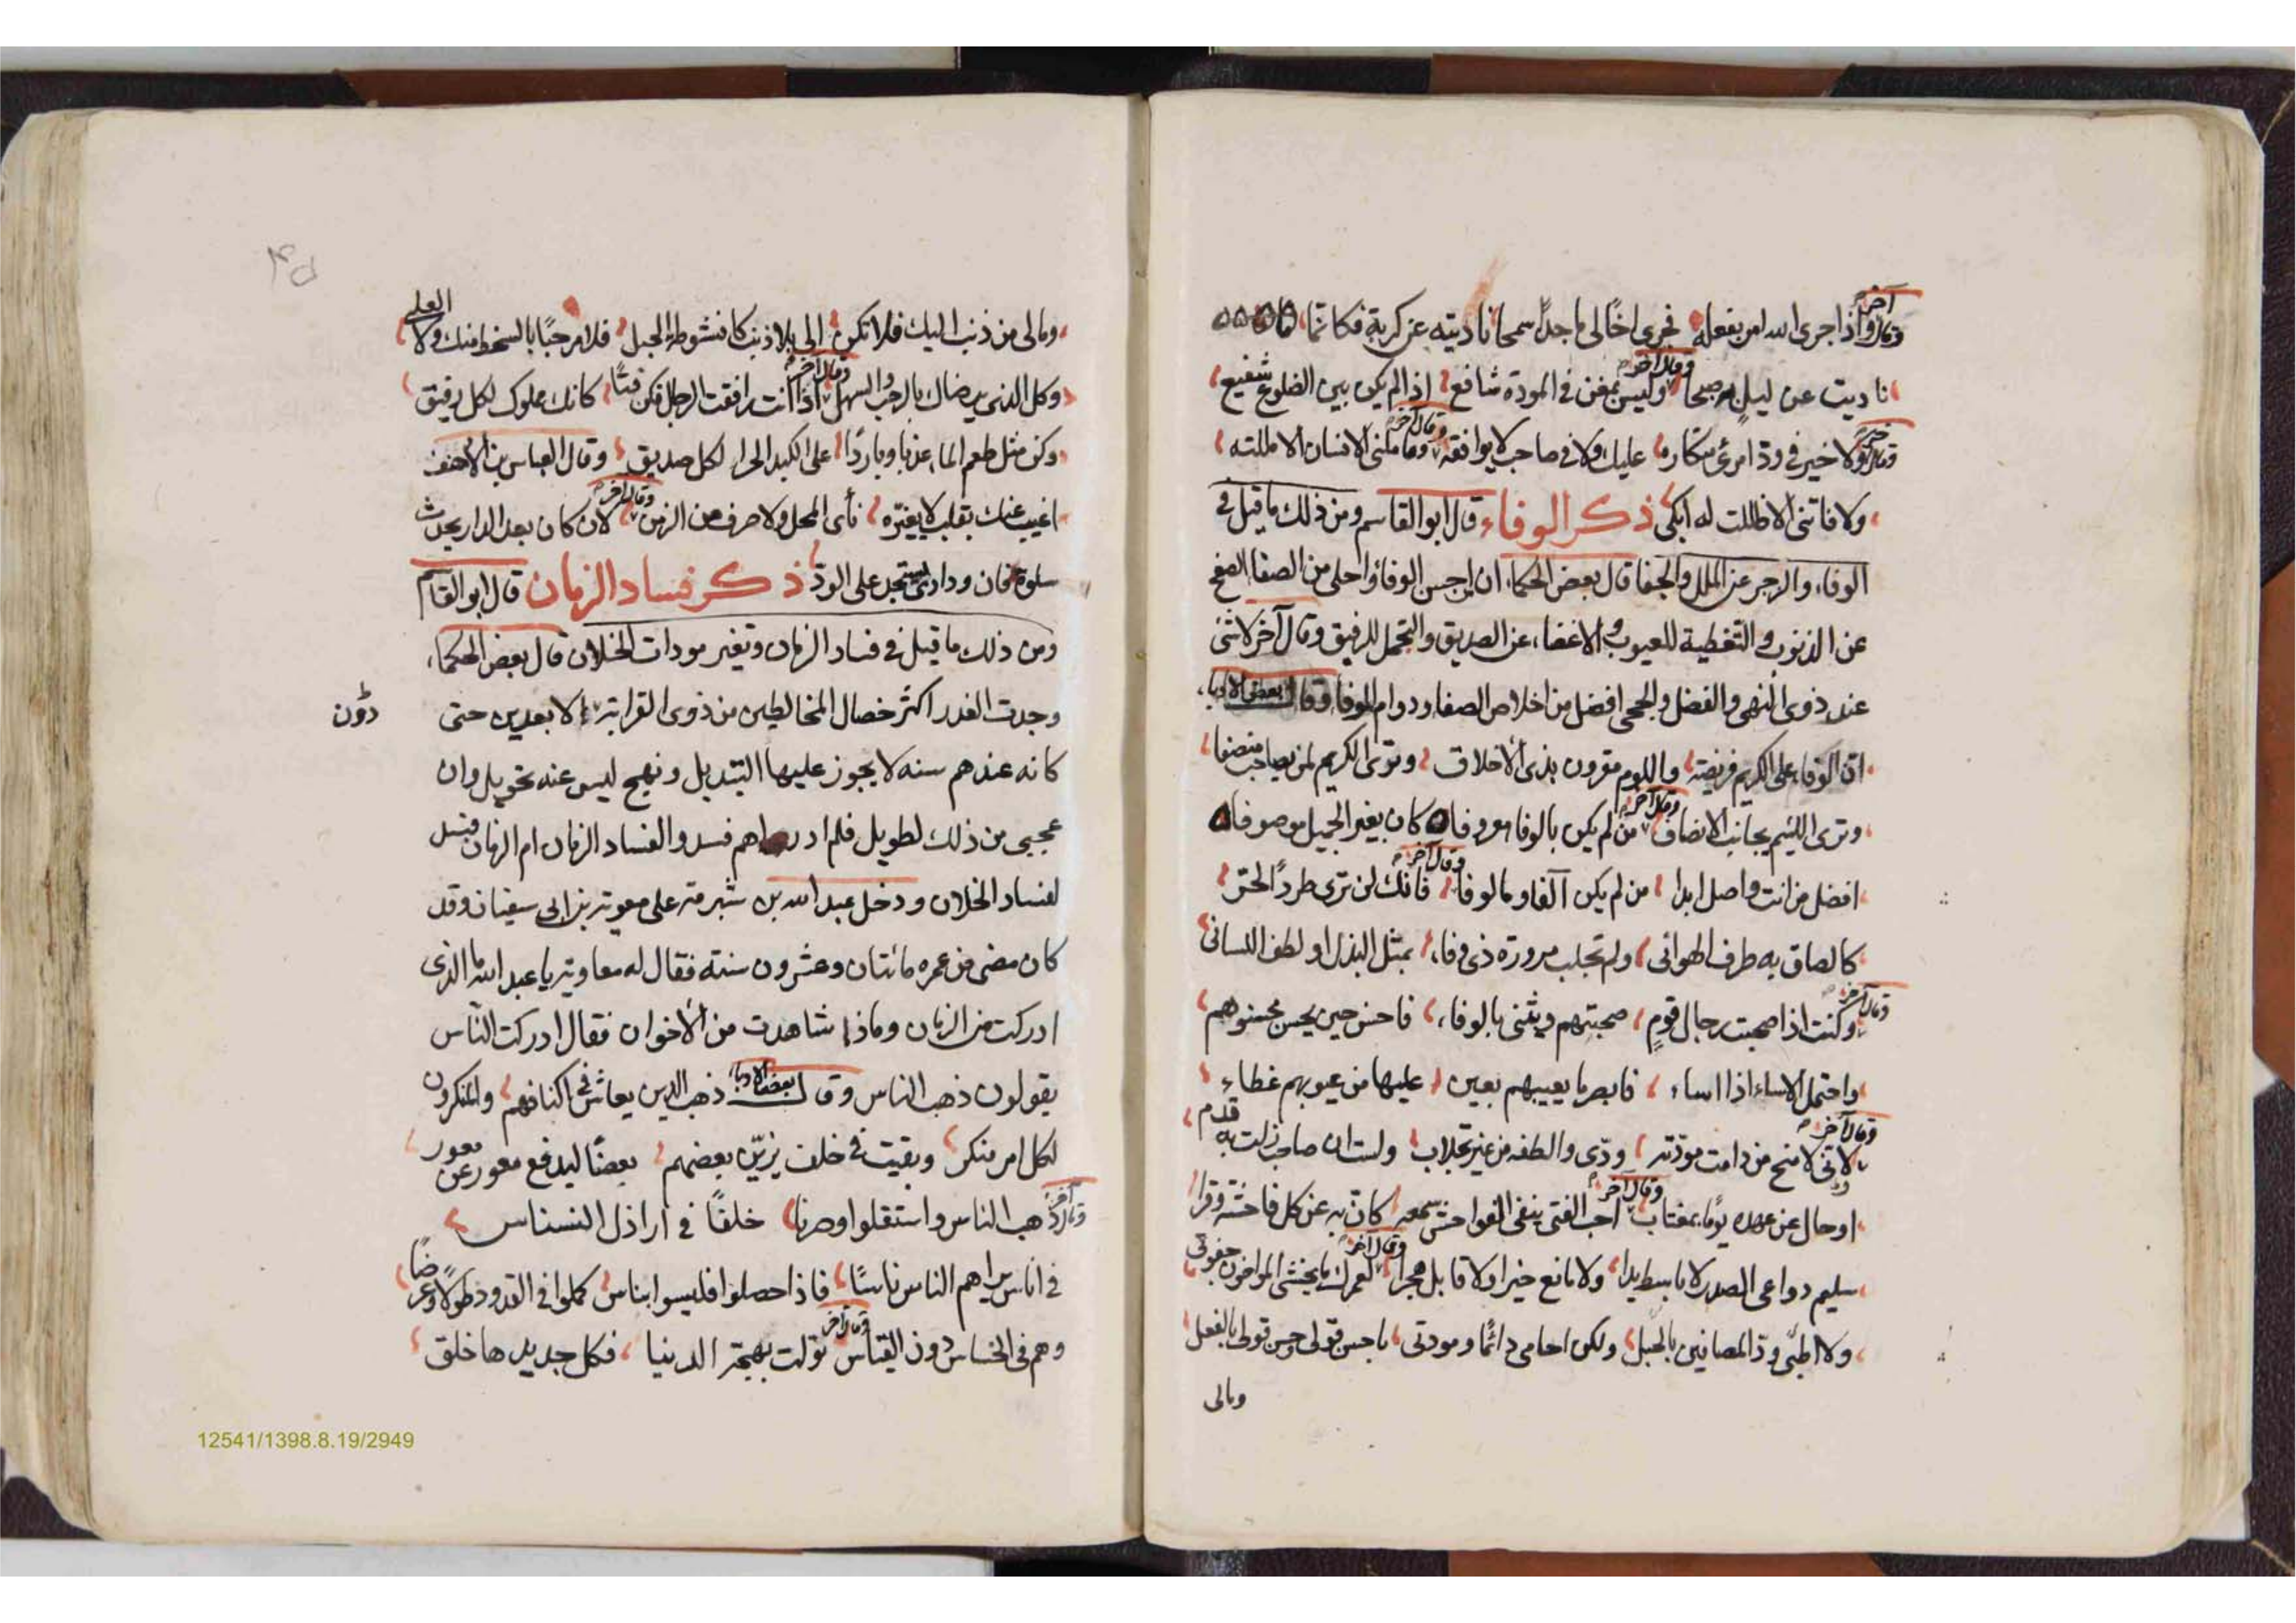 وقال آخر واذا جرى الله امرا بفعله فجرى اخا لى ماجدا سمحا ناديته عن كربة فكانما
ناديت عن ليل به صبحا وقال آخر وليس بمغن فى المودة شافع اذا لم يكن بين الضلوع شفيع
وقال آخر ولا خير فى ود امرئ متكاره عليك ولا فى صاحب لا يوافقه وقال آخر وما ملنى الانسان الا مللته
ولا فاتنى الا ظللت له ابكى ذكر الوفاء قال ابو القاسم ومن ذلك ما قيل فى
الوفاء والزجر عن الملل والجفا قال بعض الحكماء ان احسن الوفا واحلى من الصفا الصفح
عن الذنوب والتغطية للعيوب والاغضاء عن الصديق والتحمل للرفيق وقال آخر لا شئ
عند ذوى النهى والفضل والحجى افضل من اخلاص الصفا ودوام الوفا وقال بعض الادباء
ان الوفاء على الكريم فريضة واللوم مقرون بذى الاخلاق وترى الكريم لمن يصاحب منصفا
وترى اللئيم يجانب الانصاف وقال آخر من لم يكن بالوفا معروفا كان بغير الجميل موصوفا
افضل من انت واصل ابدا من لم يكن آلفا ومالوفا وقال آخر فانك لن ترى طردا لحر
كالصاق به طرف الهوانى ولم تجلب مرورة ذى وفاء بمثل البذل او لطف اللسانى
وقال آخر وكنت اذا صحبت رجال قوم صحبتهم ويثنى بالوفاء فاحسن حين يحسن محسنوهم
واحتمل الاساء اذا اساء فابصر ما يعيبهم بعين عليها من عيوبهم غطاء
وقال آخر لا تى لامنح من دامت مودته ودى والطفه من غير تجلاب ولست ان صاحب زلت به قدم
او حال عن عهده يوما بمغتاب وقال آخر احب الفتى ينفى الفواحش سمعه كان به عن كل فاحشة وقرا
سليم دواعى الصدر لا باسط يدا ولا مانع خيرا ولا قابل هجرا وقال آخر لعمرك ما يخشى المواخون جفوتى
ولا اطبى ود المصافين بالحبل ولكن احامى دائما ومودتى باحسن قولى حسن قولى بالفعل
ومالى
ومالى من ذنب اليك فلا تكن الى بلا ذنب كانشوطة الحبل فلا مرحبا بالسخط منك ولا العلى
وكل الذى يرضاك بالرحب والسهل وقال آخر اذا انت رافقت الرجال فكن فتا كانك مملوك لكل رفيق
وكن مثل طعم الماء عذبا وباردا على الكبد الحرا لكل صديق وقال العباس بن الاحنف
اغيب عنك بقلب لا يغتره نأى المحل ولا صرف من الزمن وقال آخر لان كان بعد الدار يحدث
سلوة فان ودادى يستجد على الود ذكر فساد الزمان قال ابو القاسم
ومن ذلك ما قيل فى فساد الزمان وتغير مودات الخلان قال بعض الحكماء
وجدت الغدر اكثر خصال المخالطين من ذوى القرابة الابعدين حتى
دون
كانه عندهم سنه لا يجوز عليها التبديل ونهج ليس عنه تحويل وان
عجبى من ذلك لطويل فلم ادر اهم فسدوا لفساد الزمان ام الزمان فسد
لفساد الخلان ودخل عبد الله بن شبرمة على معوية بن ابى سفيان وقد
كان مضى من عمره مائتان وعشرون سنته فقال له معاوية يا عبد الله ما الذى
ادركت من الزمان وماذا شاهدت من الاخوان فقال ادركت الناس
يقولون ذهب الناس وقال بعض الادباء ذهب الدين يعاش فى اكنافهم والمنكرون
لكل امر منكر وبقيت فى خلف يزين بعضهم بعضا ليدفع معور عن معور
وقال آخر ذهب الناس واستقلوا وصرنا خلفا فى اراذل النسناس
فى اناس يراهم الناس ناسا فاذا حصلوا فليسوا بناس كملوا فى القدود طولا وعرضا
وهم فى الخساس دون القياس وقال آخر تولت بهجة الدنيا فكل جديدها خلق
12541/1398.8.19/2949